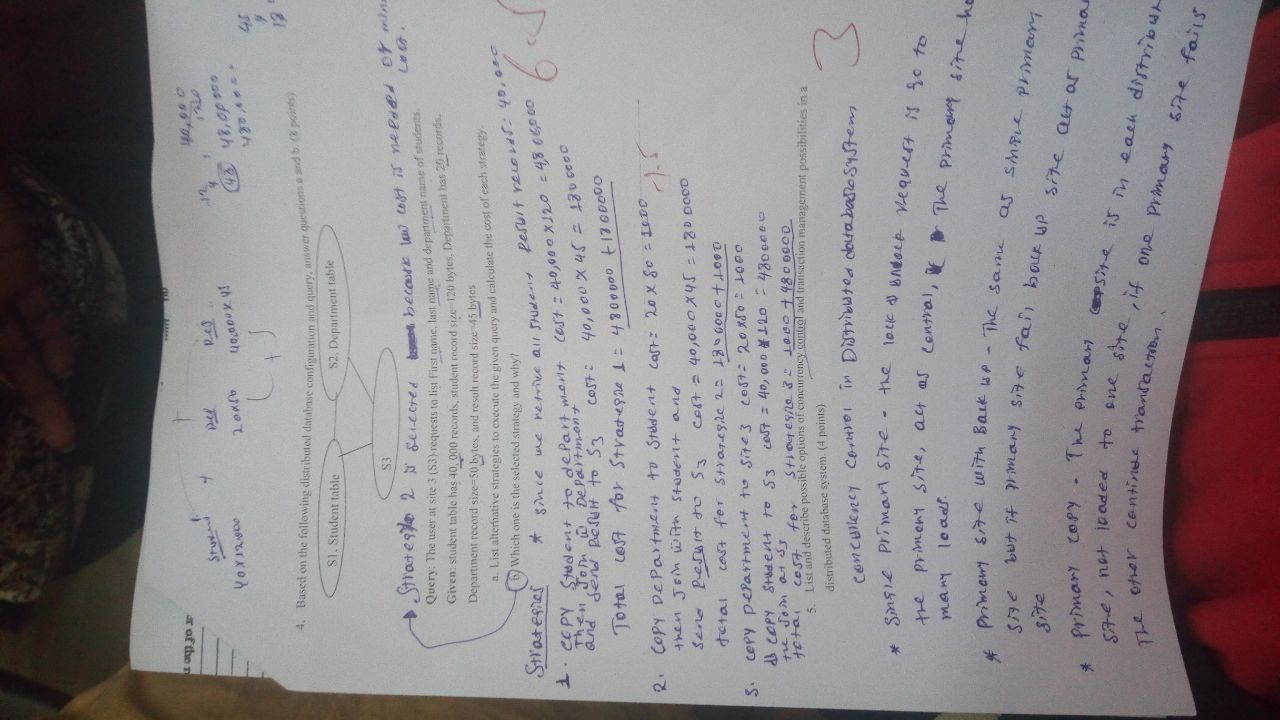 Student + Dep Res
40X12000 20x50 40,000 X 45
+
40,000
120
48
45
4. Based on the following distributed database configuration and query, answer questions a and b. (8 points)
S1. Student table
S2, Department table
S3
Strategie 2 is selected because low cost is needed or
cost.
Query: The user at site 3 (S3) requests to list First name, last name and department name of students.
Given: student table has 40, 000 records, student record size=120 bytes, Department has 20 records,
Department record size=50 bytes, and result record size=45 bytes
a. List alternative strategies to execute the given query and calculate the cost of each strategy.
b. Which one is the selected strategy and why?
Strategies * since we retrive all student Result records: 40,000
6.5
1. COPY Student to department cost = 40,000 X 120 =
Then Join w Department
and send Result to S3 cost: 40,000 X 45 = 1800000
Total cost for Strategie 1 = 4800000 + 1800000
2. COPY Department to Student cost: 20 x 50 = 1000
-1.5
then Join with student and
send Result to S3 cost = 40,000X45 = 1800000
total cost for Strategie 2 = 1800000 + 1000
3. COPY Department to site3 cost= 20x50 = 1000
COPY Student to S3 cost = 40,000 * 120 = 4800000
Join at S3
total cost for Strategie 3 = 1000 + 4800000
5. List and describe possible options of concurrency control and transaction management possibilities in a
distributed database system. (4 points)
3
concurrency control in Distributed database system
* Single Primary Site - the lock & unlock request is go to
the primary site, act as central, The primary site
many loads.
* Primary site with Back up - The same as single primary
site but if primary site fail, back up site act as
site
* Primary copy - The primary site is in each
site, not loaded to one site, if one primary site fails
The other continue transaction.